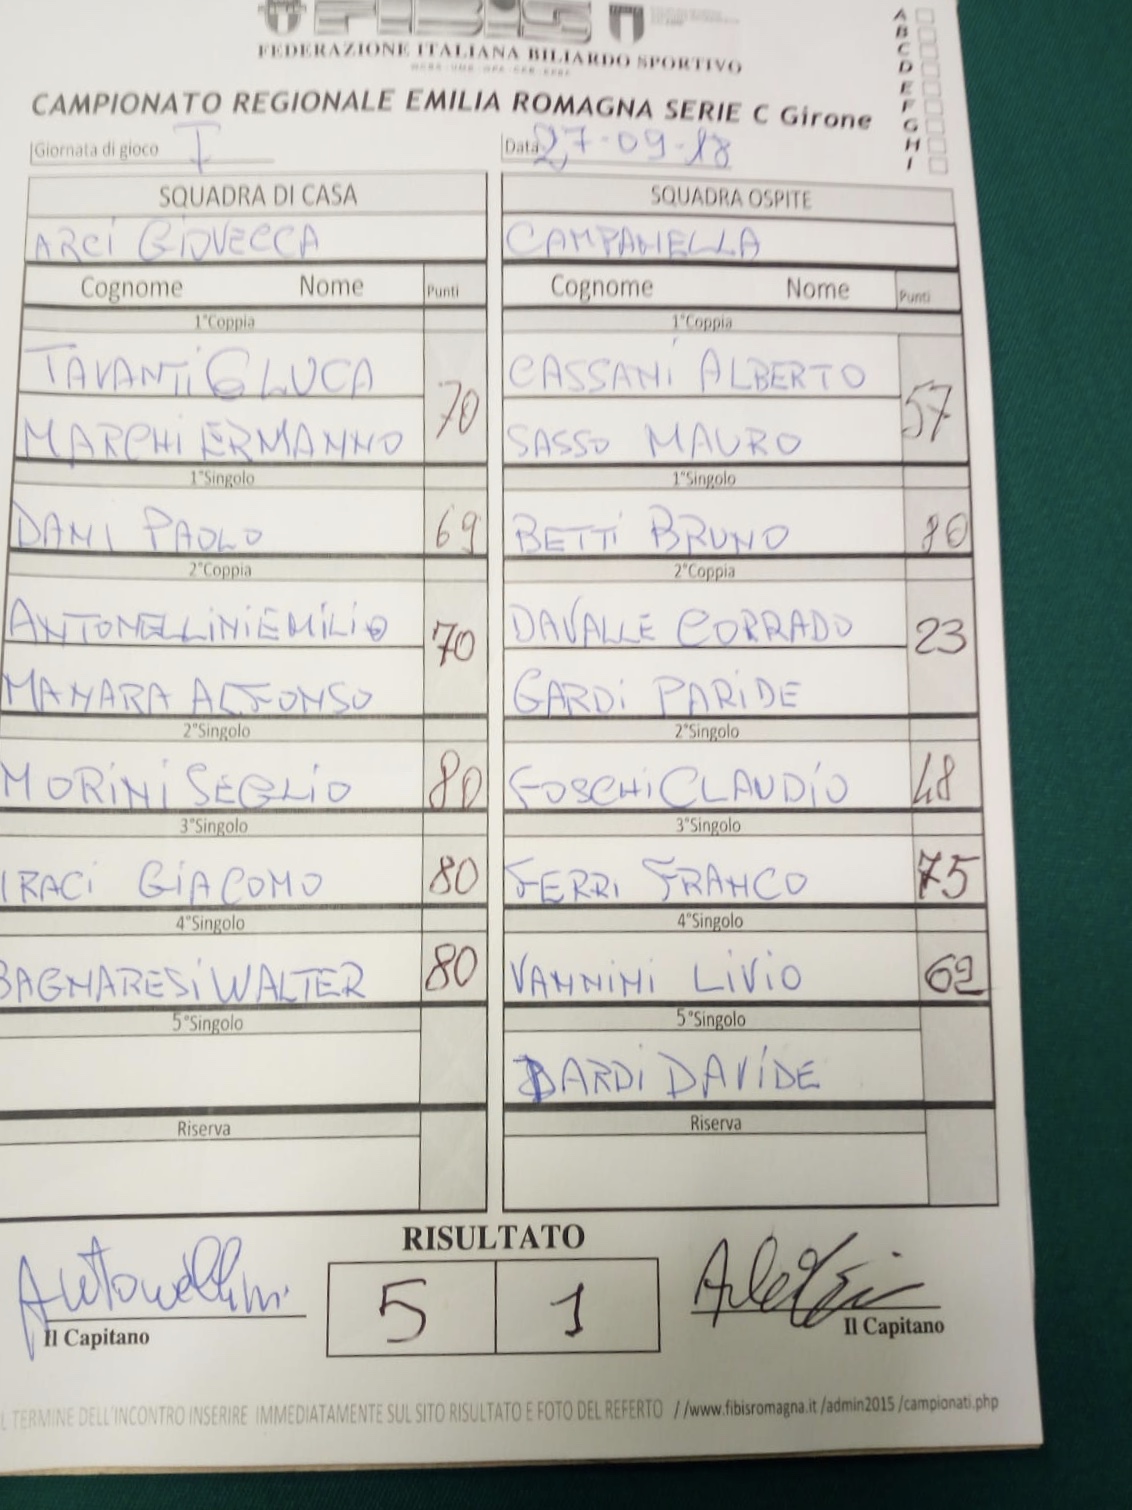 FIBiS
FEDERAZIONE ITALIANA BILIARDO SPORTIVO
CAMPIONATO REGIONALE EMILIA ROMAGNA SERIE C Girone
A
B
C
D
E
F
G
H
I
Giornata di gioco I
Data 27-09-18
SQUADRA DI CASA SQUADRA OSPITE
ARCI GIOVECCA CAMPANELLA
Cognome Nome Punti Cognome Nome Punti
1°Coppia 1°Coppia
TAVANTI G LUCA 70 CASSANI ALBERTO 57
MARCHI ERMANNO SASSO MAURO
1°Singolo 1°Singolo
DANI PAOLO 69 BETTI BRUNO 80
2°Coppia 2°Coppia
ANTONELLINI EMILIO 70 DAVALLE CORRADO 23
MANARA ALFONSO GARDI PARIDE
2°Singolo 2°Singolo
MORINI SEGLIO 80 FOSCHI CLAUDIO 48
3°Singolo 3°Singolo
IRACI GIACOMO 80 FERRI FRANCO 75
4°Singolo 4°Singolo
BAGNARESI WALTER 80 VANNINI LIVIO 62
5°Singolo 5°Singolo
BARDI DAVIDE
Riserva Riserva
RISULTATO
Antonellini 5 1
Il Capitano Il Capitano
L TERMINE DELL'INCONTRO INSERIRE IMMEDIATAMENTE SUL SITO RISULTATO E FOTO DEL REFERTO //www.fibisromagna.it /admin2015 /campionati.php